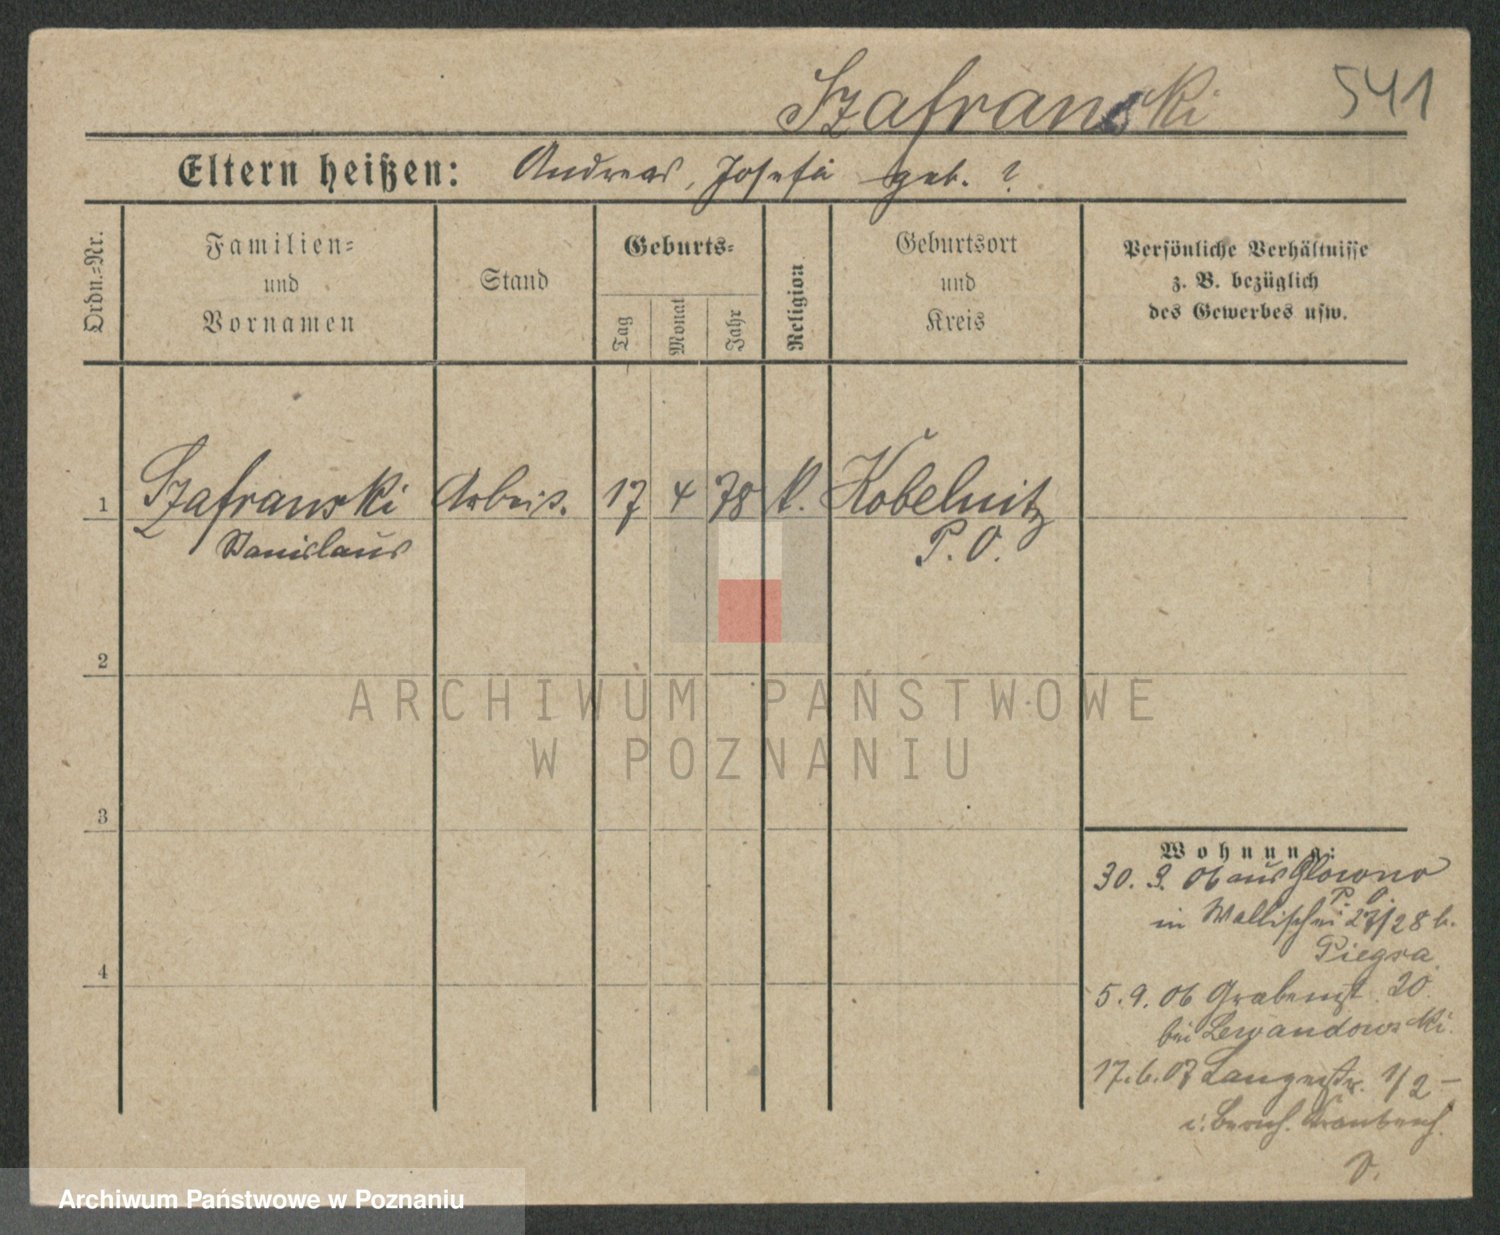 Szafranski
541
Eltern heißen: Andreas, Josefa geb. ?
Ordn.=Nr.
Familien=
und
Vornamen
Stand
Geburts=
Tag
Monat
Jahr
Religion
Geburtsort
und
Kreis
Persönliche Verhältnisse
z. B. bezüglich
des Gewerbes usw.
1 Szafranski Arbeit. 17 4 78 k. Kobelnitz
Stanislaus P. O.
2
ARCHIWUM PAŃSTWOWE
W POZNANIU
3
Wohnung:
30. 3. 06 aus Glowno
P. O.
in Wallischei 27/28 b.
Piegsa
4
5. 9. 06 Grabenst. 20
bei Lewandowski.
17. 6. 07 Langestr. 1/2 –
Archiwum Państwowe w Poznaniu